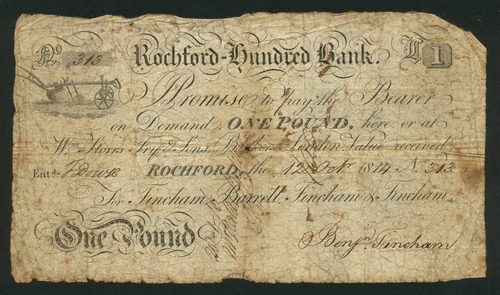 No 313 Rochford-Hundred Bank. £ 1
I Promise to pay the Bearer
on Demand ONE POUND, here or at
Wm. Storrs Fry & Sons, London. Value received
Entd. ROCHFORD, the 12 Octr. 1814 No 313
For Tincham, Barrell, Tincham & Tincham.
One Pound
Benjn. Tincham